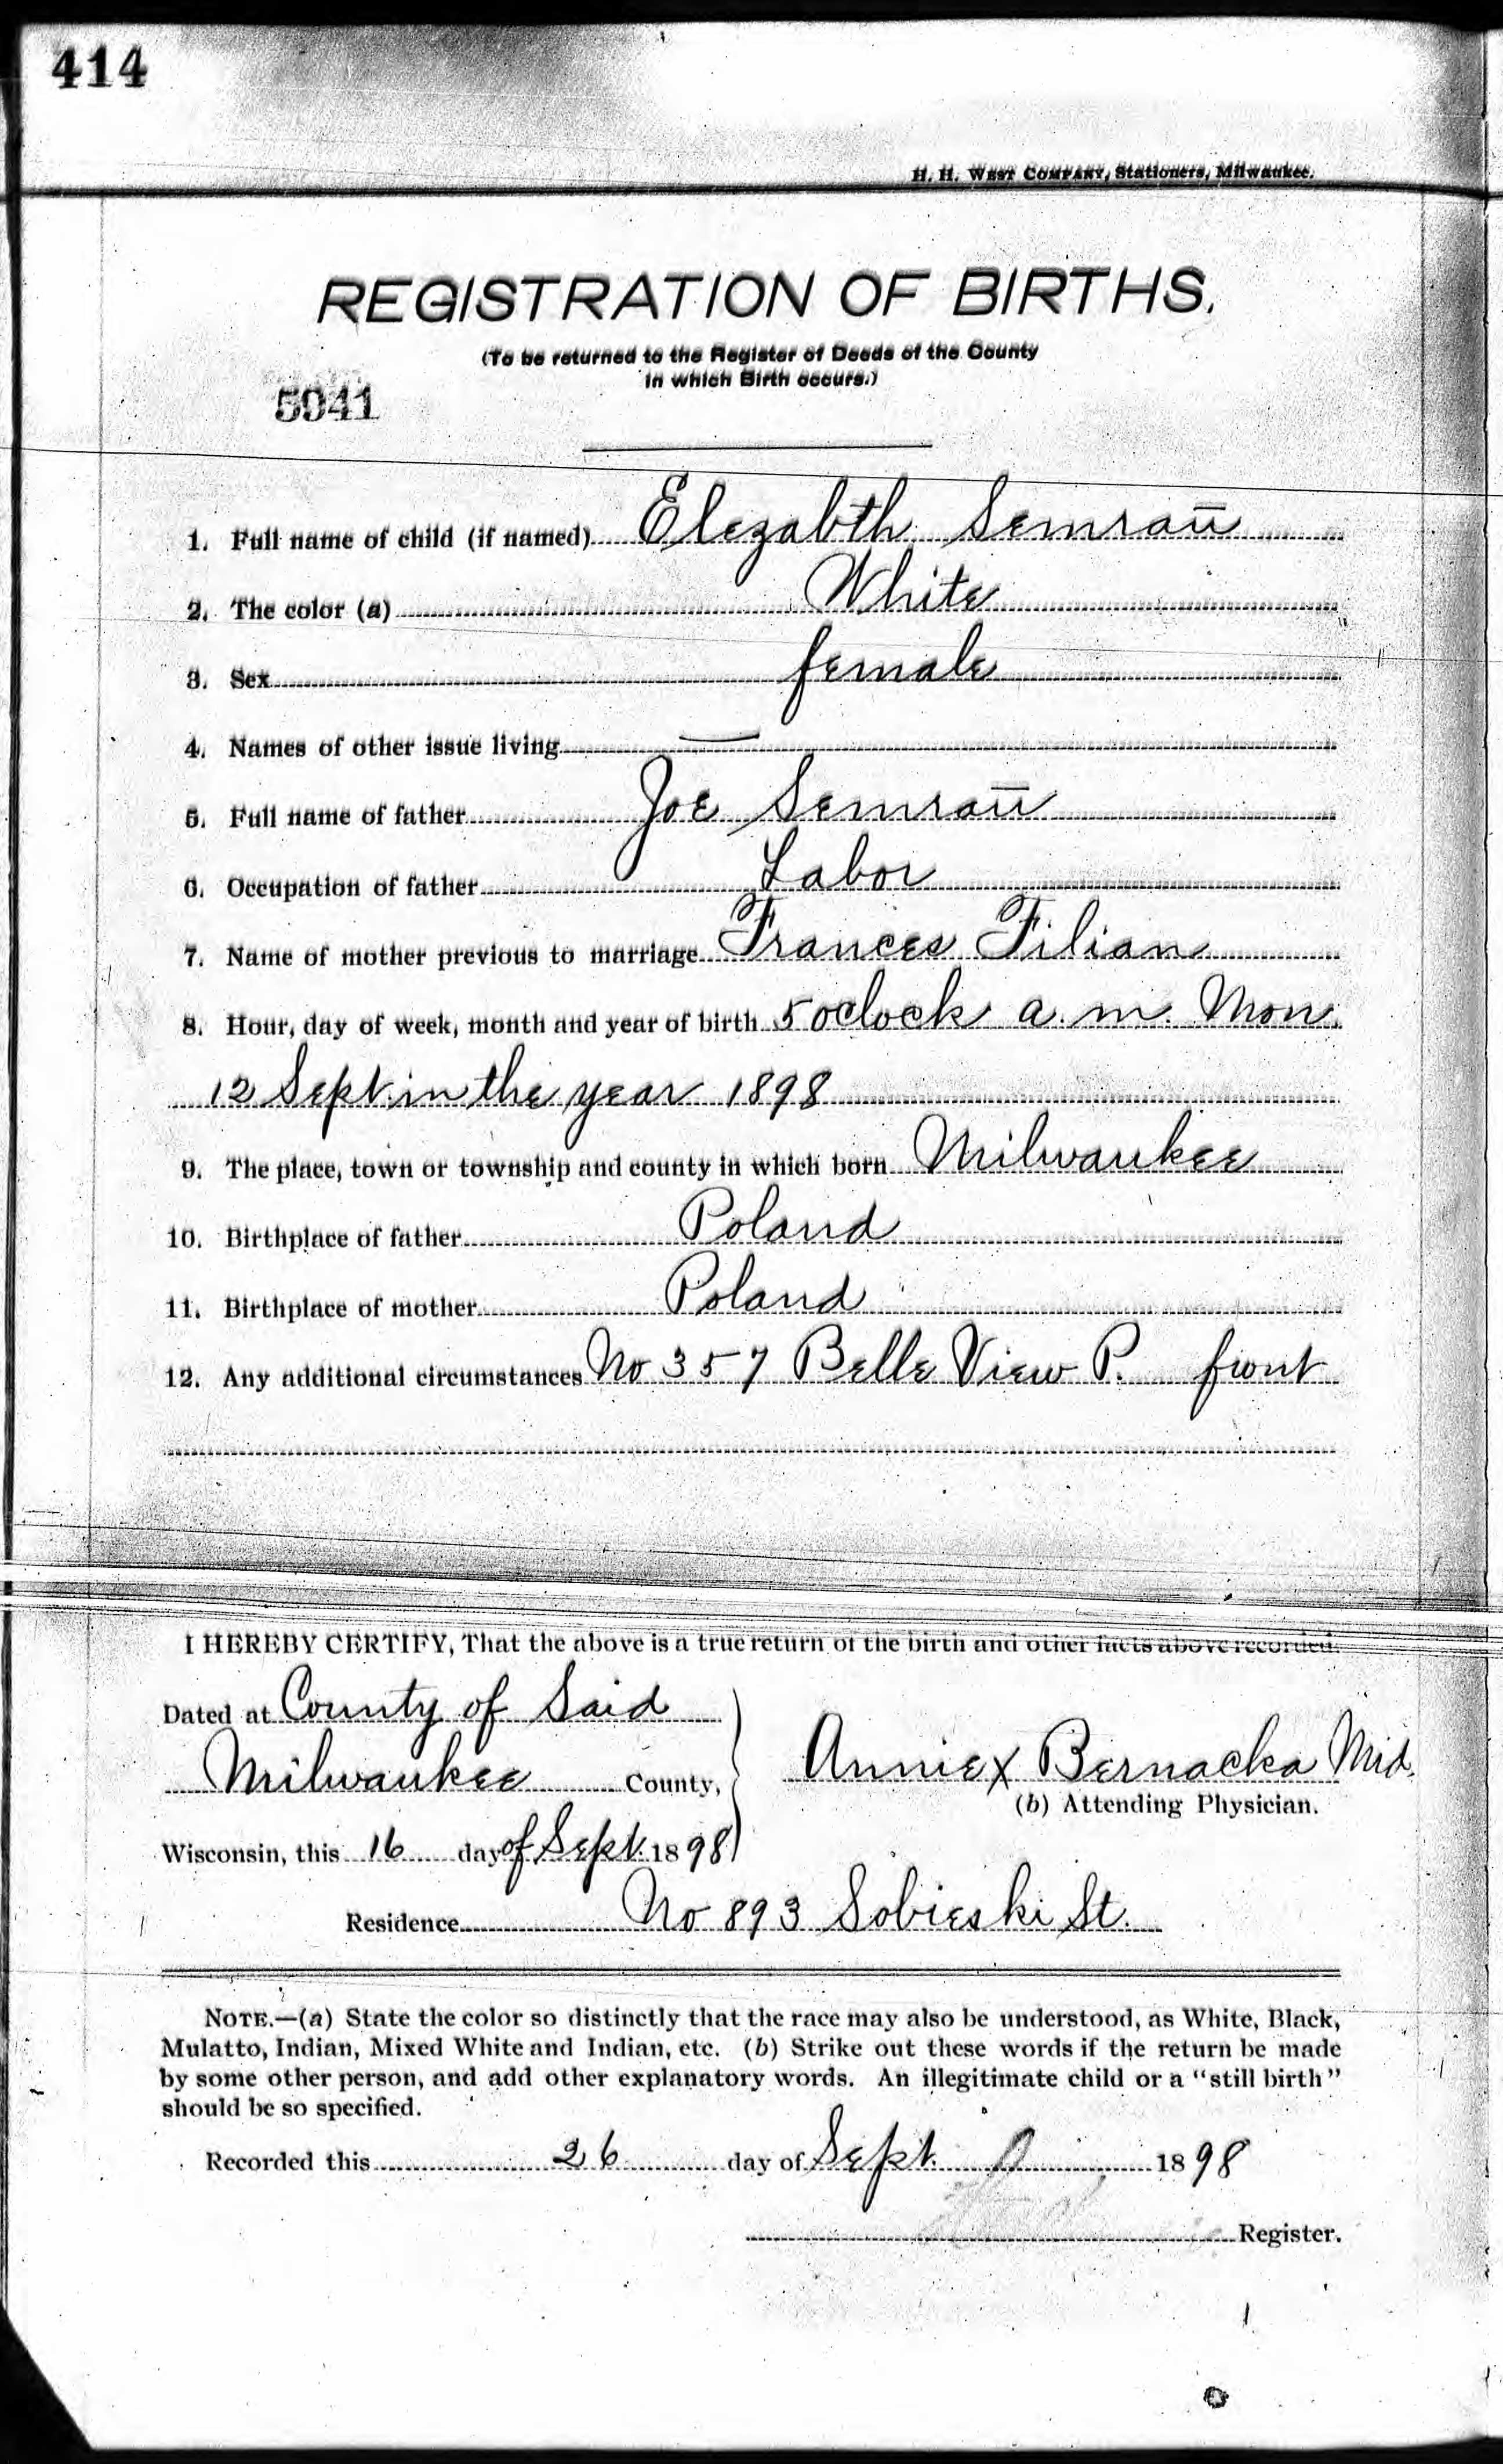 414
H. H. WEST COMPANY, Stationers, Milwaukee.
REGISTRATION OF BIRTHS.
(To be returned to the Register of Deeds of the County
in which Birth occurs.)
5941
1. Full name of child (if named) Elezabth Semraū
2. The color (a) White
3. Sex female
4. Names of other issue living —
5. Full name of father Joe Semraū
6. Occupation of father Labor
7. Name of mother previous to marriage Frances Filian
8. Hour, day of week, month and year of birth 5 oclock a.m. Mon.
12 Sept. in the year 1898
9. The place, town or township and county in which born Milwaukee
10. Birthplace of father Poland
11. Birthplace of mother Poland
12. Any additional circumstances No 357 Belle View P. front
I HEREBY CERTIFY, That the above is a true return of the birth and other facts above recorded.
Dated at County of Said
Milwaukee County,
Annie X Bernacka Mid.
(b) Attending Physician.
Wisconsin, this 16 day of Sept. 1898
Residence No 893 Sobieski St.
NOTE.—(a) State the color so distinctly that the race may also be understood, as White, Black,
Mulatto, Indian, Mixed White and Indian, etc. (b) Strike out these words if the return be made
by some other person, and add other explanatory words. An illegitimate child or a "still birth"
should be so specified.
Recorded this 26 day of Sept. 1898
Register.